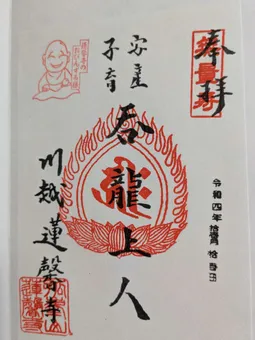 奉拝
令和四年拾壹月
安産
子育
呑龍上人
川越蓮馨寺